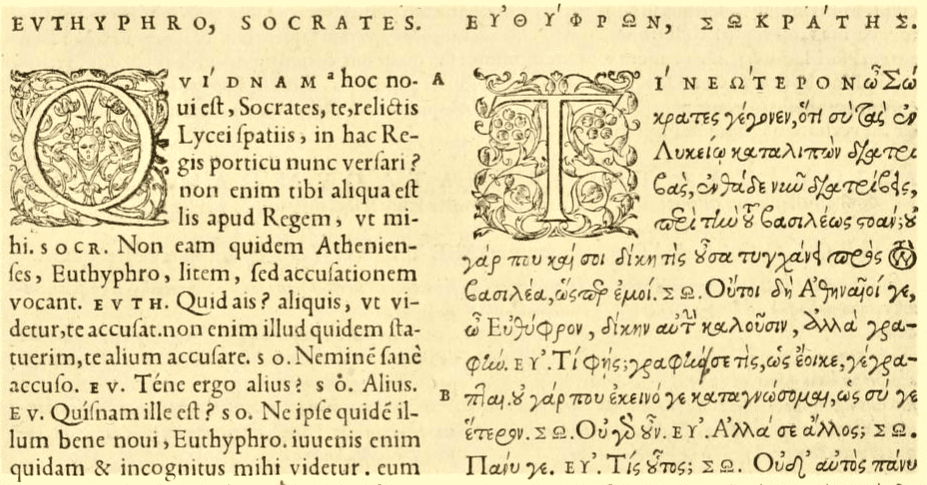 EVTHYPHRO, SOCRATES.
QVIDNAM a hoc no-
ui eſt, Socrates, te, relictis
Lycei ſpatiis, in hac Re-
gis porticu nunc verſari?
non enim tibi aliqua eſt
lis apud Regem, vt mi-
hi. SOCR. Non eam quidem Athenien-
ſes, Euthyphro, litem, ſed accuſationem
vocant. EVTH. Quid ais? aliquis, vt vi-
detur, te accuſat. non enim illud quidem ſta-
tuerim, te alium accuſare. SO. Neminē ſanè
accuſo. EV. Téne ergo alius? SO. Alius.
EV. Quiſnam ille eſt? SO. Ne ipſe quidē il-
lum bene noui, Euthyphro. iuuenis enim
quidam & incognitus mihi videtur. eum
ΕΥ᾿ΘΥ΄ΦΡΩΝ, ΣΩΚΡΑ΄ΤΗΣ.
A
ΤΙ΄ ΝΕΩ΄ΤΕΡΟΝ ὦ Σώ
κρατες γέγονεν, ὅτι σὺ τὰς ἐν
Λυκείῳ καταλιπὼν διατρι
βὰς, ἐνθάδε νῦν διατρίβεις,
περὶ τὴν τοῦ βασιλέως στοάν; οὐ
γάρ που καὶ σοι δίκη τὶς οὖσα τυγχάνει πρὸς τὸν
βασιλέα, ὥσπερ ἐμοί. ΣΩ. Οὔτοι δὴ Ἀθηναῖοί γε,
ὦ Εὐθύφρον, δίκην αὐτὴν καλοῦσιν, ἀλλὰ γρα-
φήν. ΕΥ᾿. Τί φής; γραφὴν σε τὶς, ὡς ἔοικε, γέγρα-
B
πται. οὐ γάρ που ἐκεῖνό γε καταγνώσομαι, ὡς σύ γε
ἕτερον. ΣΩ. Οὐ γὰρ οὖν. ΕΥ᾿. Ἀλλά σε ἄλλος; ΣΩ.
Πάνυ γε. ΕΥ᾿. Τίς οὗτος; ΣΩ. Οὐδ' αὐτὸς πάνυ